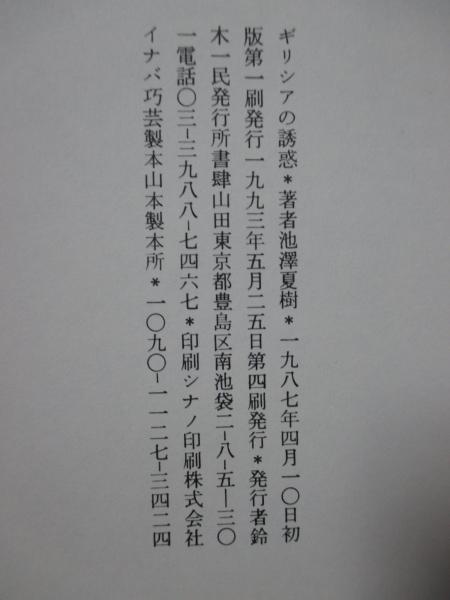 ギリシアの誘惑*著者池澤夏樹*一九八七年四月一〇日初
版第一刷発行一九九三年五月二五日第四刷発行*発行者鈴
木一民発行所書肆山田東京都豊島区南池袋二-八-五-三〇
一電話〇三-三九八八-七四六七*印刷シナノ印刷株式会社
イナバ巧芸製本山本製本所*一〇九〇-一一二七-三四二四